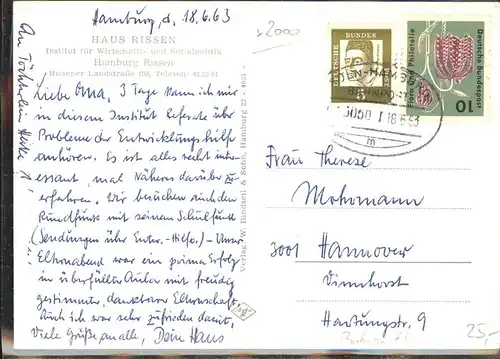 Hamburg d. 18.6.63
HAUS RISSEN
Institut für Wirtschafts- und Sozialpolitik
Hamburg Rissen
Rissener Landstraße 193, Telefon: 81 22 81
Liebe Oma, 3 Tage kann ich mir
in diesem Institut Referate über
Probleme der Entwicklungshilfe
anhören. Es ist alles recht inter-
essant, mal Näheres darüber zu
erfahren. Wir besuchen auch den
Rundfunk mit seinem Schulfunk
(Sendungen über Entw.-Hilfe.) - Unser
Elternabend war ein prima Erfolg
in überfüllter Aula mit freudig
gestimmter, dankbarer Elternschaft.
Auch ich war sehr zufrieden damit,
Viele Grüße an alle, Dein Hans
An Töchterlein Heike
Verlag W. Bindseil & Sohn, Hamburg 22
2000
DEUTSCHE BUNDESPOST
Deutsche Bundespost
Flora und Philatelie
10
BAHNPOST
18.6.63
m
Frau Therese
3001 Hannover
Hartungstr. 9
25,-